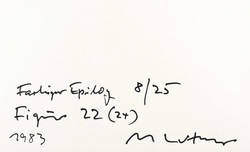 Farbiger Epilog 8/25
Figur 22 (24)
1983